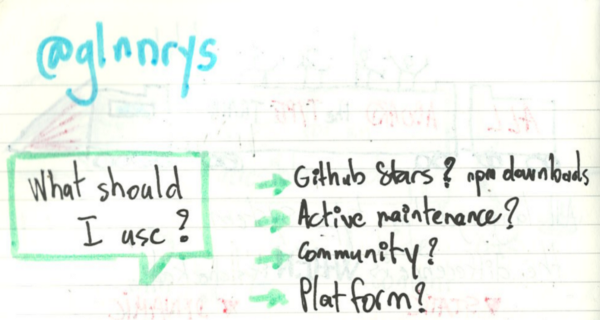 @glnnrys
What should
I use?
Github Stars? npm downloads
Active maintenance?
Community?
Platform?